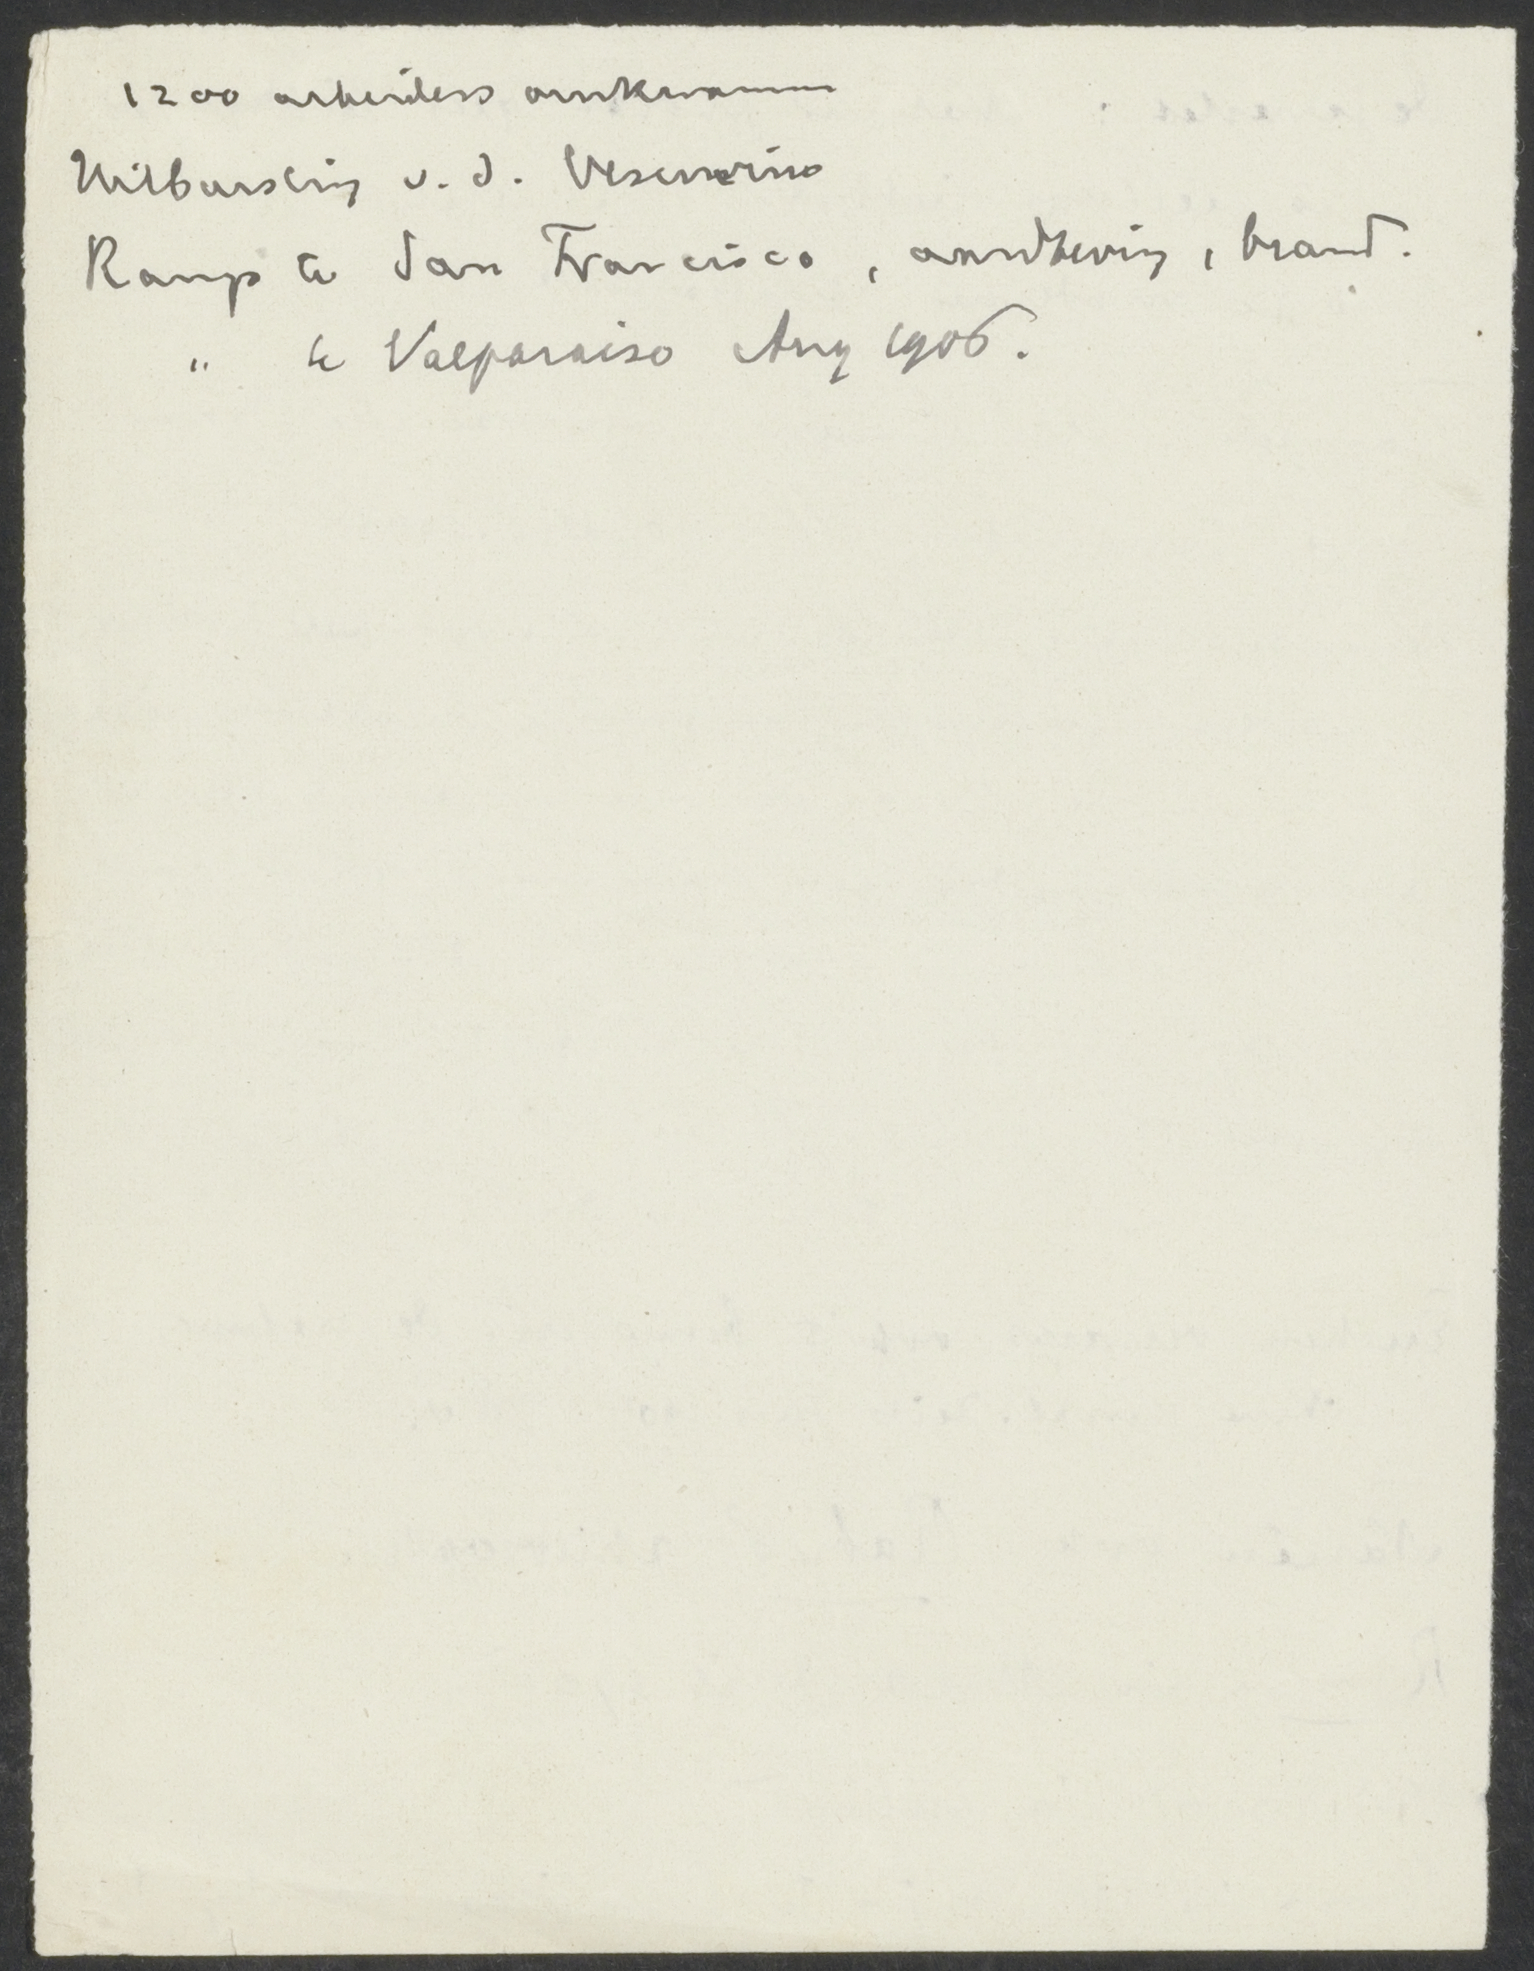 1200 arbeiders omkwamen
Uitbarsting v. d. Vesuvius
Ramp te San Francisco, aardbeving, brand.
" te Valparaiso Aug 1906.